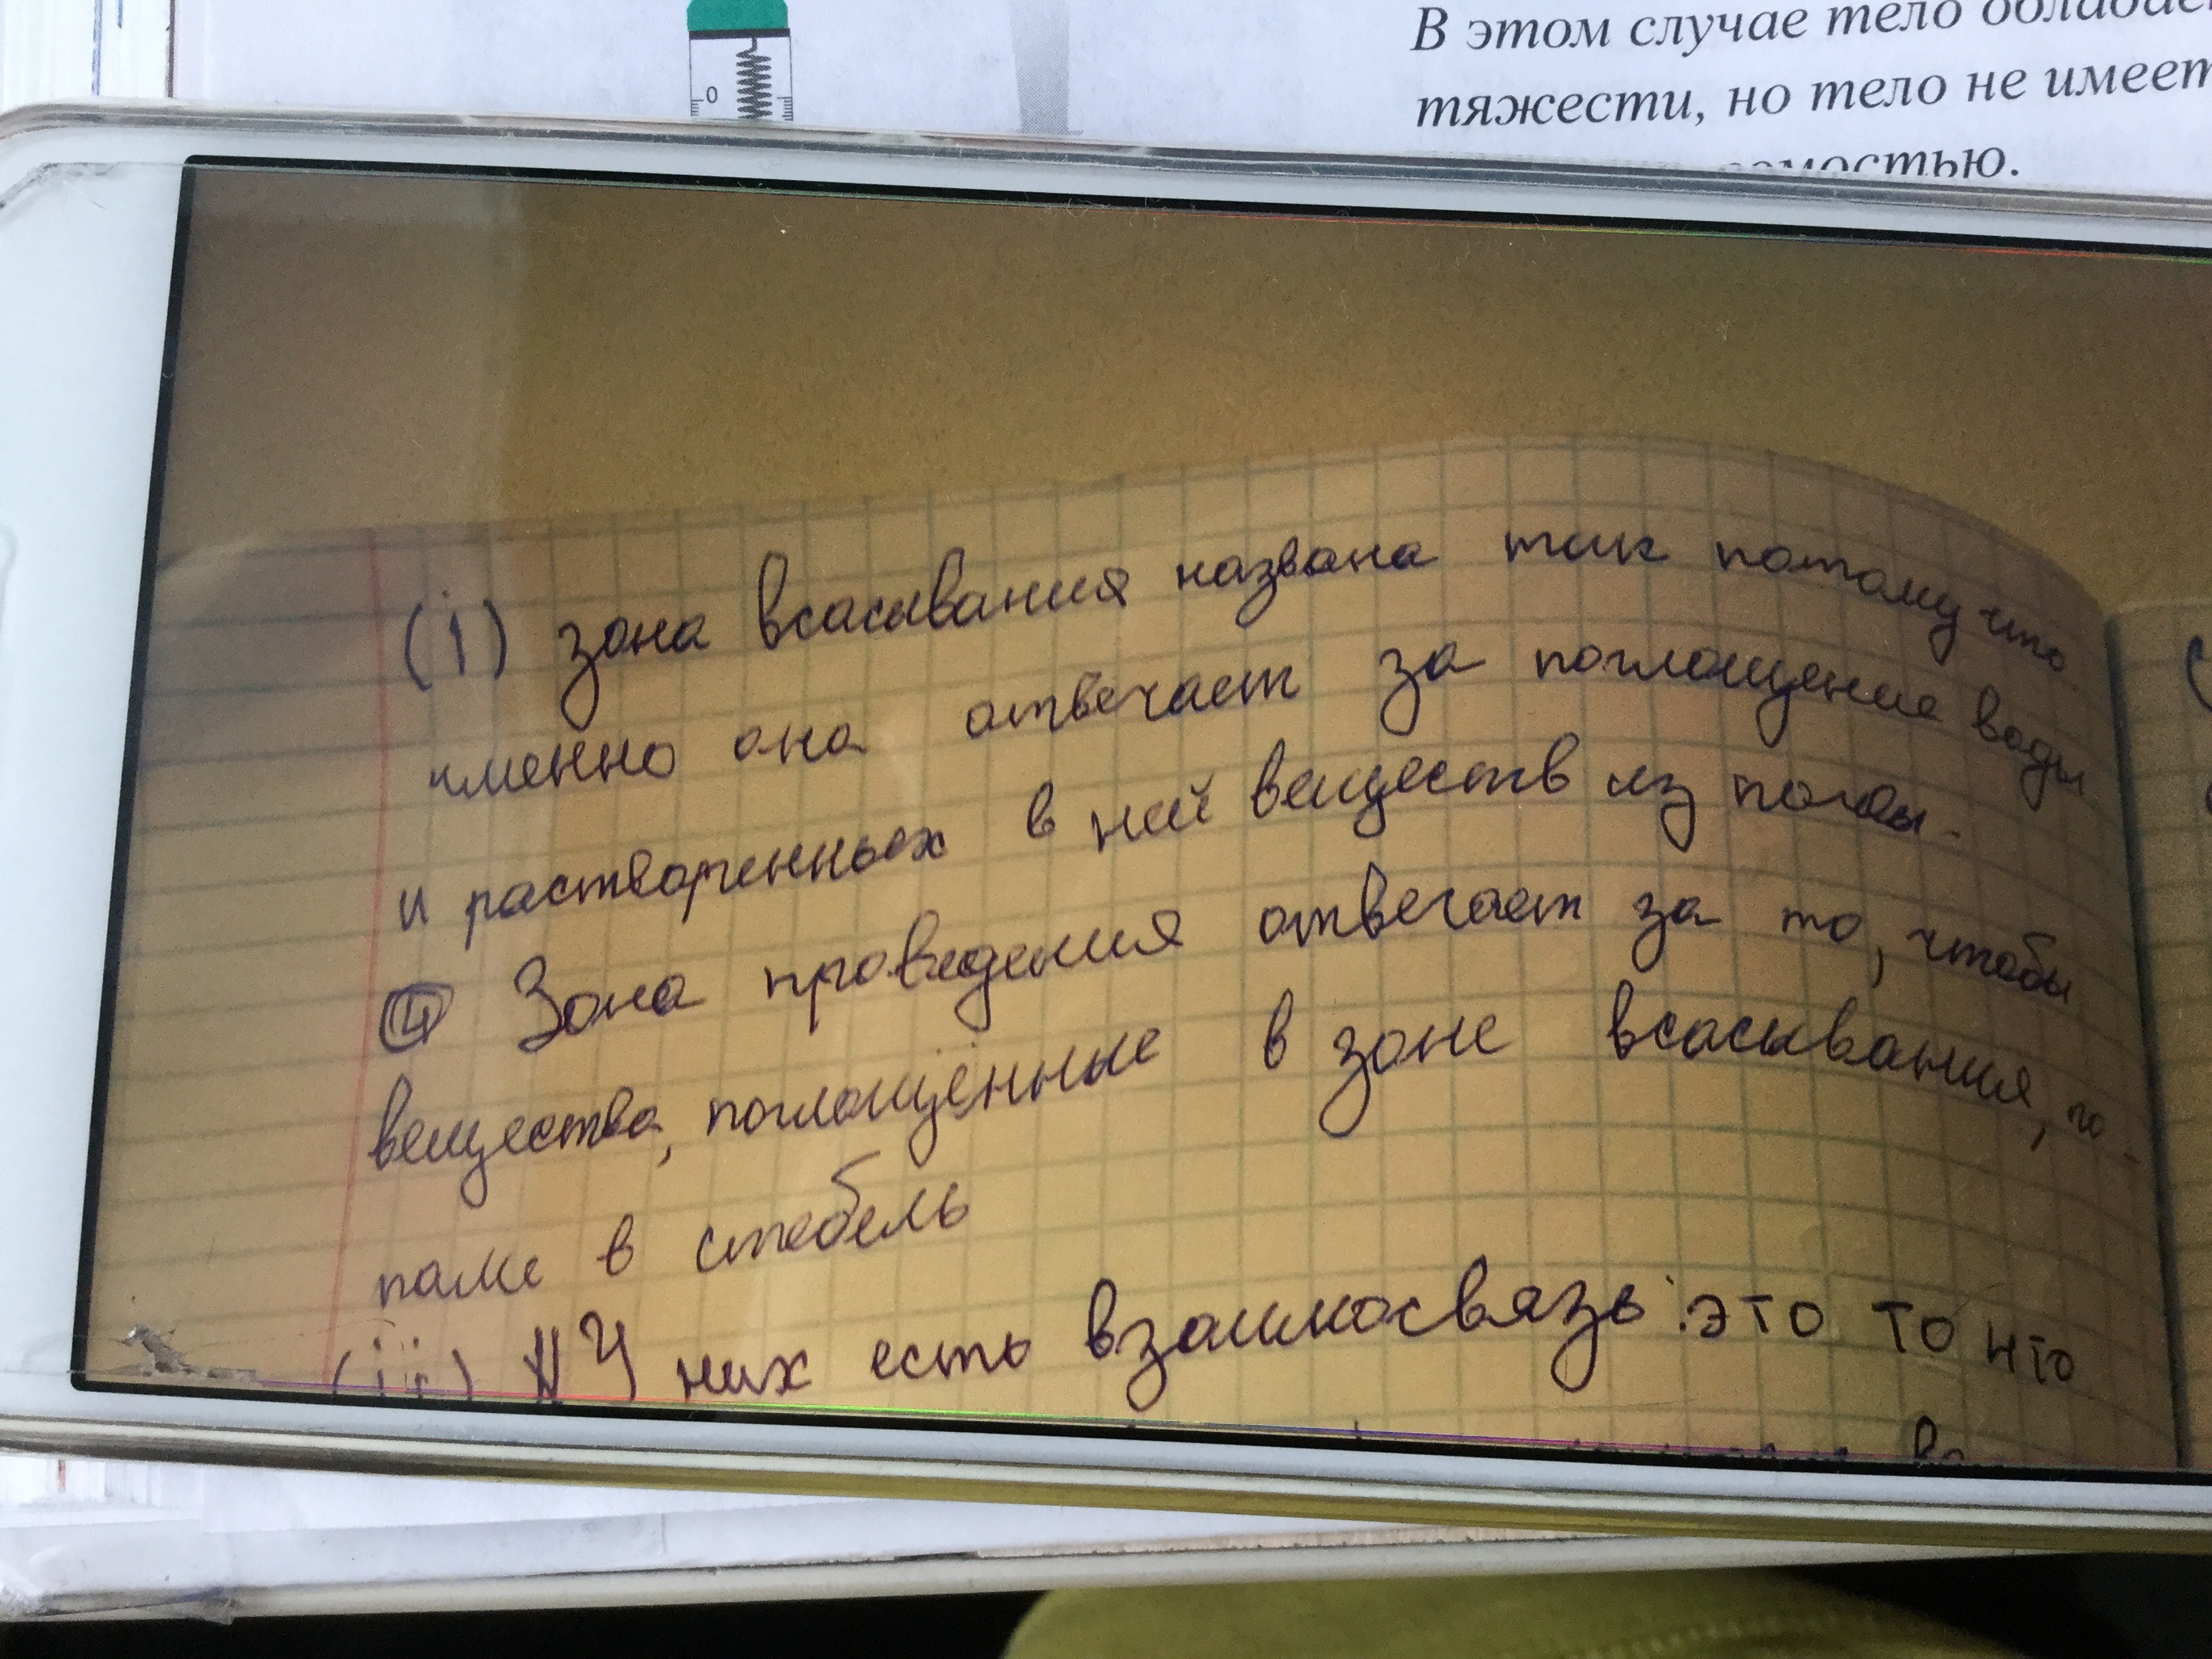 В этом случае тело обладает
тяжести, но тело не имеет
0
(i) зона всасывания названа так потому что
именно она отвечает за поглощение воды
и растворенных в ней веществ из почвы.
Зона проведения отвечает за то, чтобы
вещества, поглощённые в зоне всасывания, по-
пали в стебель
(ii) У них есть взаимосвязь: это то что